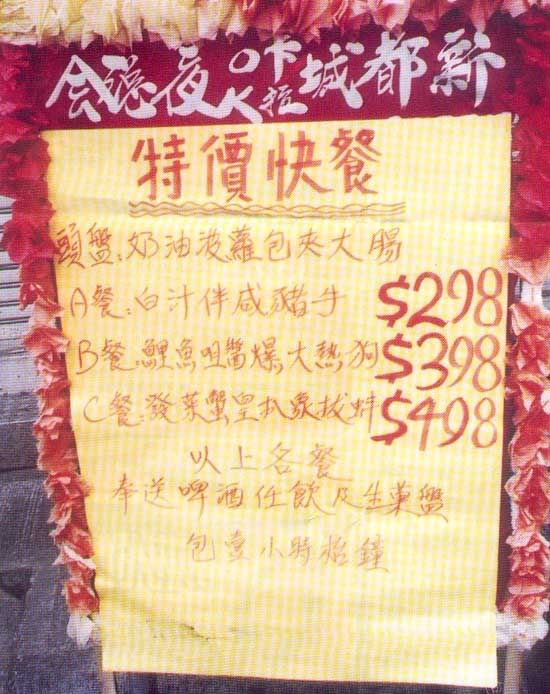 新都城卡拉OK夜總會
特價快餐
頭盤:奶油菠蘿包夾大腸
A餐:白汁伴咸豬手 $298
B餐:鯉魚咀醬爆大熱狗 $398
C餐:發菜蟹皇扒象拔蚌 $498
以上各餐
奉送啤酒任飲及生菓盤
包壹小時枱鐘